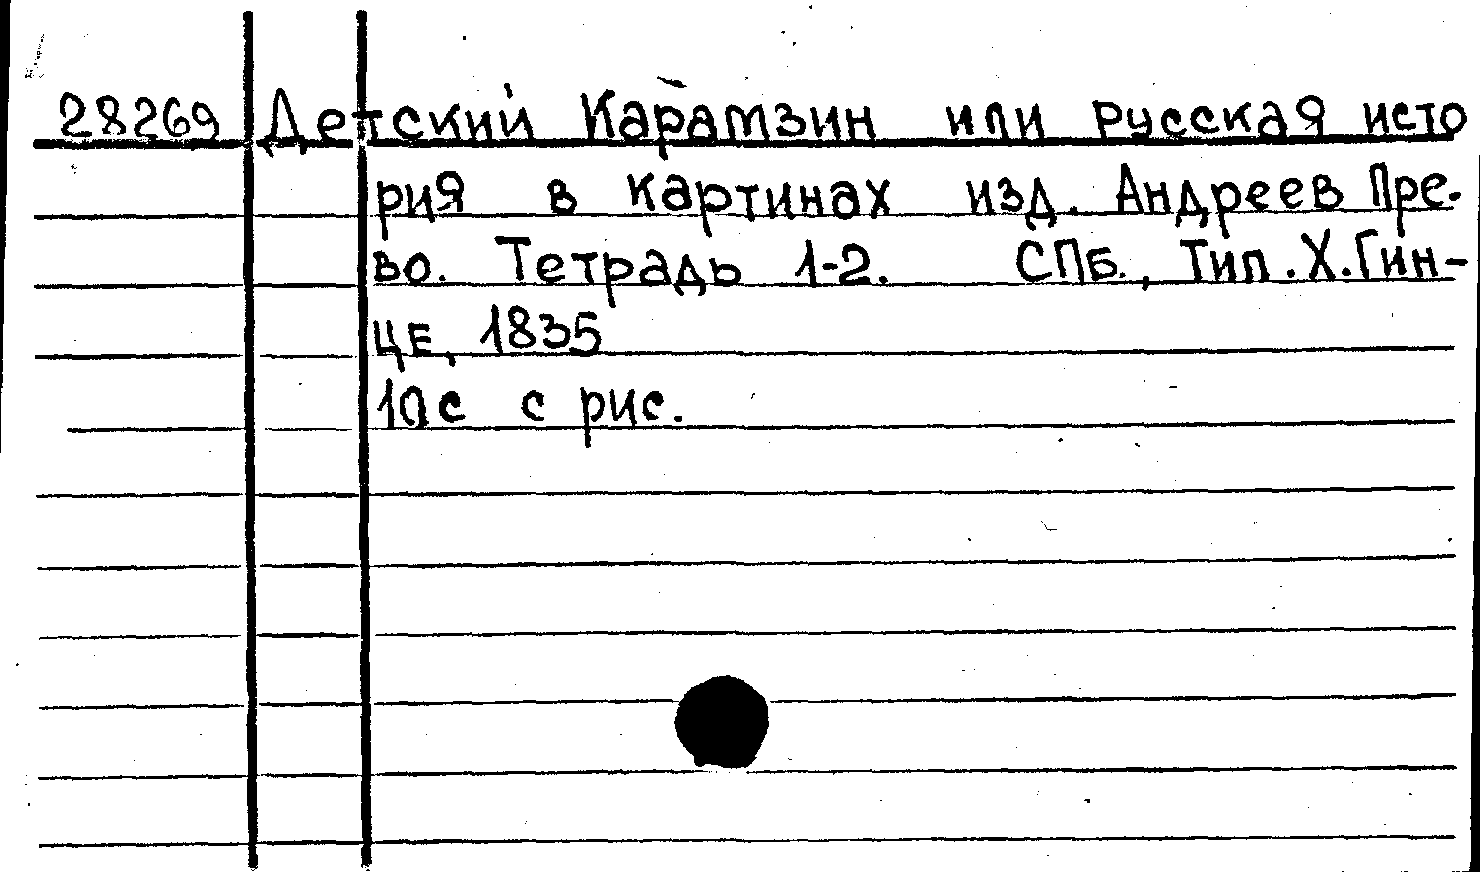 28269 Детский Карамзин или русская исто
рия в картинах изд. Андреев Пре-
во. Тетрадь 1-2. СПБ., Тип. Х. Гин-
це, 1835
10с с рис.